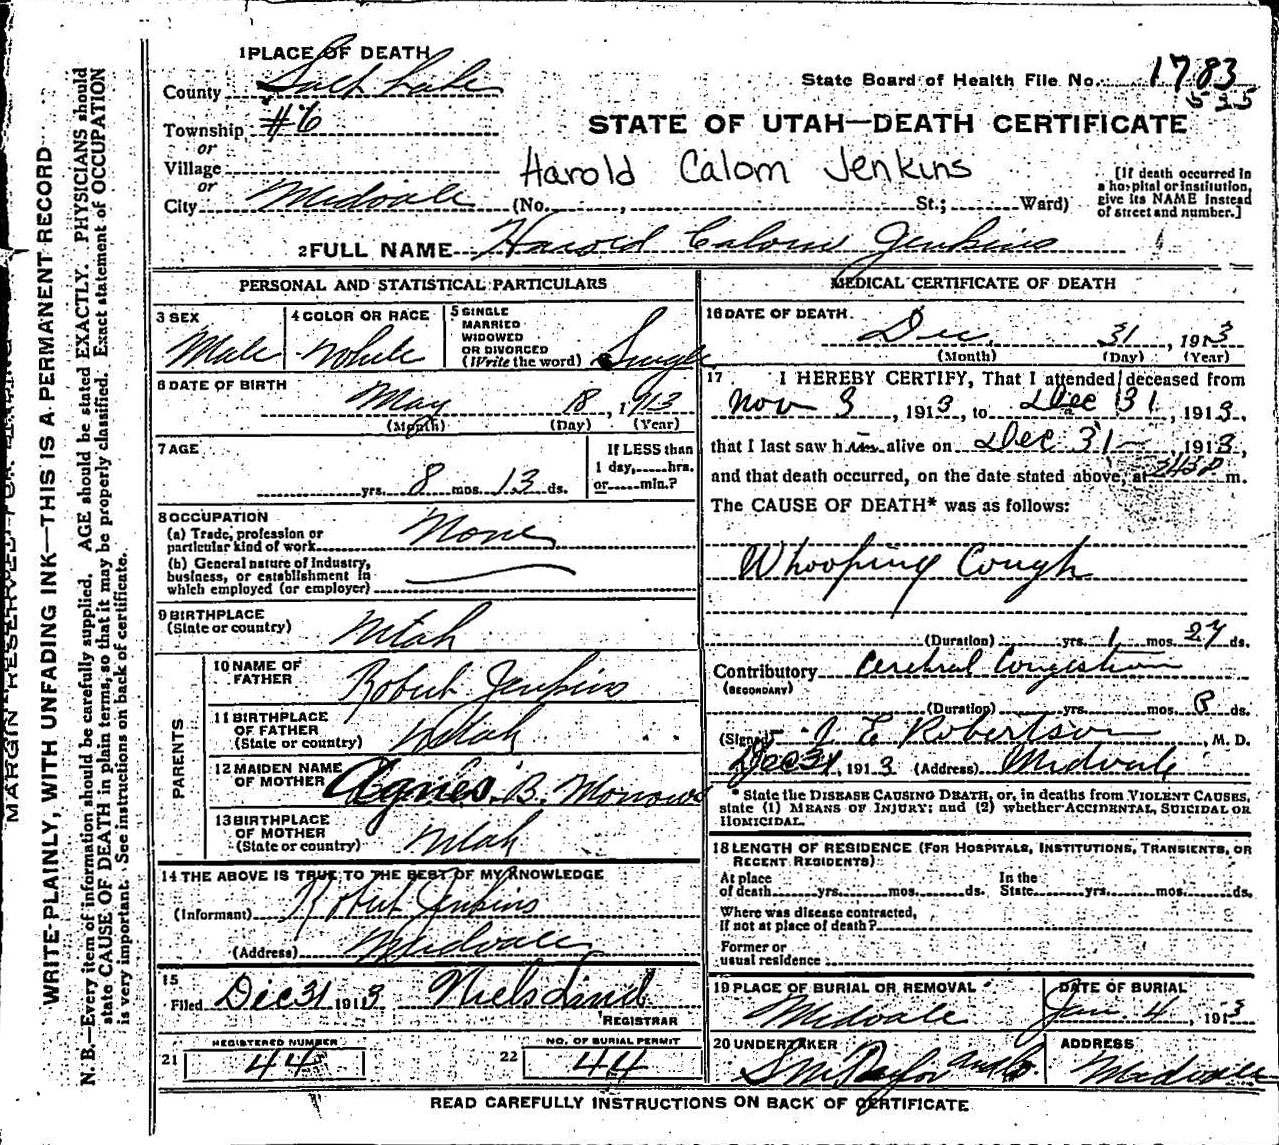 MARGIN RESERVED FOR BINDING
WRITE PLAINLY, WITH UNFADING INK—THIS IS A PERMANENT RECORD
N. B.—Every item of information should be carefully supplied. AGE should be stated EXACTLY. PHYSICIANS should
state CAUSE OF DEATH in plain terms, so that it may be properly classified. Exact statement of OCCUPATION
is very important. See instructions on back of certificate.
1 PLACE OF DEATH
County Salt Lake
Township #6
or
Village
or
City Midvale (No. , St.; Ward)
State Board of Health File No. 1783
535
STATE OF UTAH—DEATH CERTIFICATE
Harold Calom Jenkins
[If death occurred in
a hospital or institution,
give its NAME instead
of street and number.]
2 FULL NAME Harold Calom Jenkins
PERSONAL AND STATISTICAL PARTICULARS
3 SEX
Male
4 COLOR OR RACE
White
5 SINGLE
MARRIED
WIDOWED
OR DIVORCED
(Write the word) Single
6 DATE OF BIRTH
May 18, 1913
(Month) (Day) (Year)
7 AGE
yrs. 8 mos. 13 ds.
If LESS than
1 day, hrs.
or min.?
8 OCCUPATION
(a) Trade, profession or
particular kind of work None
(b) General nature of Industry,
business, or establishment in
which employed (or employer)
9 BIRTHPLACE
(State or country) Utah
PARENTS
10 NAME OF
FATHER Robert Jenkins
11 BIRTHPLACE
OF FATHER
(State or country) Utah
12 MAIDEN NAME
OF MOTHER Agnes B.
13 BIRTHPLACE
OF MOTHER
(State or country) Utah
14 THE ABOVE IS TRUE TO THE BEST OF MY KNOWLEDGE
(Informant) Robert Jenkins
(Address) Midvale
15
Filed Dec 31 1913 Niels Lind
REGISTRAR
21 REGISTERED NUMBER
44
22 NO. OF BURIAL PERMIT
44
MEDICAL CERTIFICATE OF DEATH
16 DATE OF DEATH
Dec 31, 1913
(Month) (Day) (Year)
17 I HEREBY CERTIFY, That I attended deceased from
Nov 3, 1913, to Dec 31, 1913,
that I last saw him alive on Dec 31— 1913,
and that death occurred, on the date stated above, at m.
The CAUSE OF DEATH* was as follows:
Whooping Cough
(Duration) yrs. 1 mos. 27 ds.
Contributory Cerebral Congestion
(SECONDARY)
(Duration) yrs. mos. ds.
(Signed) J E Robertson, M. D.
Dec 31, 1913 (Address) Midvale
* State the DISEASE CAUSING DEATH, or, in deaths from VIOLENT CAUSES,
state (1) MEANS OF INJURY; and (2) whether ACCIDENTAL, SUICIDAL OR
HOMICIDAL.
18 LENGTH OF RESIDENCE (FOR HOSPITALS, INSTITUTIONS, TRANSIENTS, OR
RECENT RESIDENTS)
At place of death yrs. mos. ds. In the State yrs. mos. ds.
Where was disease contracted,
If not at place of death?
Former or
usual residence
19 PLACE OF BURIAL OR REMOVAL
Midvale
DATE OF BURIAL
Jan. 4, 1913
20 UNDERTAKER
ADDRESS
Midvale
READ CAREFULLY INSTRUCTIONS ON BACK OF CERTIFICATE